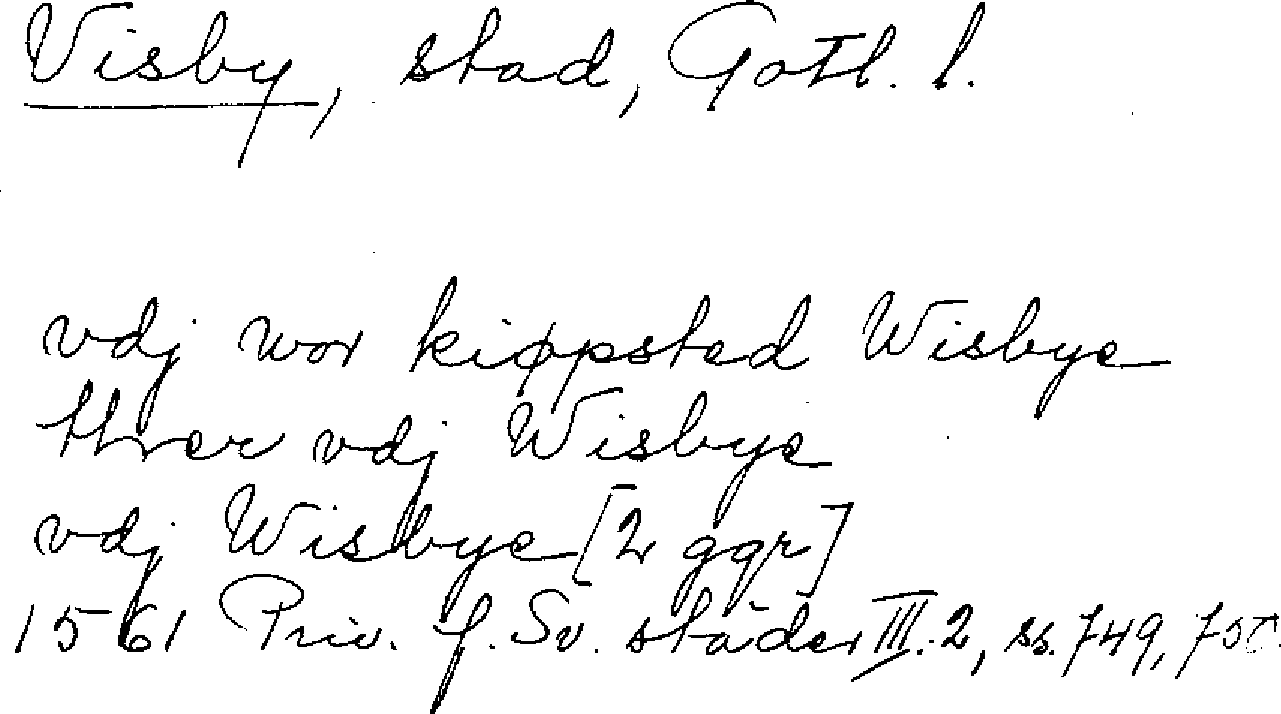 Visby, stad, Gotl. l.
vdj wor kiøpsted Wisbye
thver vdj Wisbye
vdj Wisbye [2 ggr]
1561 Priv. f. Sv. städer III.2, ss. 749, 750.